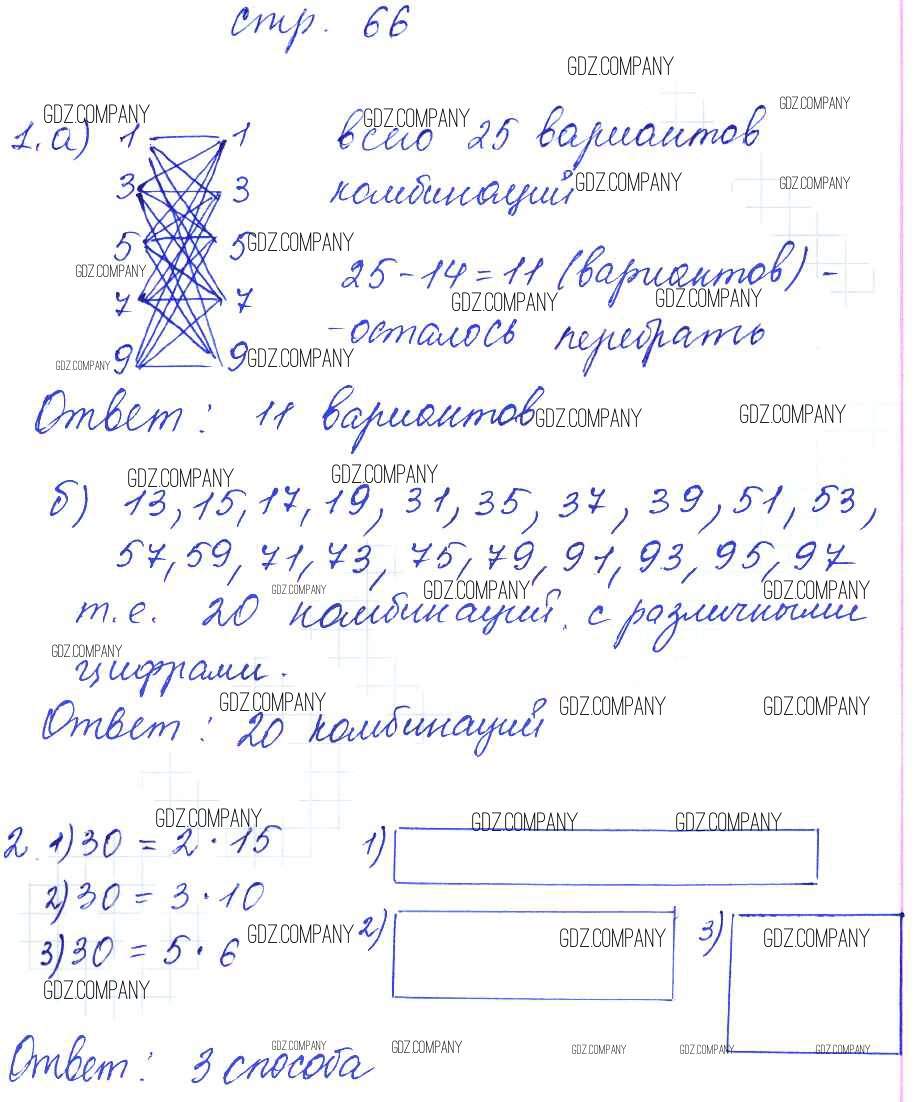 стр. 66
GDZ.COMPANY
GDZ.COMPANY
GDZ.COMPANY
GDZ.COMPANY
1. а) 1 1 всего 25 вариантов
3 3 комбинаций GDZ.COMPANY GDZ.COMPANY
5 5 GDZ.COMPANY
GDZ.COMPANY 25-14=11 (вариантов) -
7 7 GDZ.COMPANY GDZ.COMPANY
-осталось перебрать
GDZ.COMPANY 9 9 GDZ.COMPANY
Ответ: 11 вариантов GDZ.COMPANY GDZ.COMPANY
GDZ.COMPANY GDZ.COMPANY
б) 13, 15, 17, 19, 31, 35, 37, 39, 51, 53,
57, 59, 71, 73, 75, 79, 91, 93, 95, 97
GDZ.COMPANY GDZ.COMPANY GDZ.COMPANY
т.е. 20 комбинаций с различными
GDZ.COMPANY
цифрами.
GDZ.COMPANY GDZ.COMPANY GDZ.COMPANY
Ответ: 20 комбинаций
GDZ.COMPANY GDZ.COMPANY GDZ.COMPANY
2. 1) 30 = 2 · 15 1)
2) 30 = 3 · 10
GDZ.COMPANY 2) GDZ.COMPANY 3) GDZ.COMPANY
3) 30 = 5 · 6
GDZ.COMPANY
GDZ.COMPANY GDZ.COMPANY GDZ.COMPANY GDZ.COMPANY GDZ.COMPANY
Ответ: 3 способа